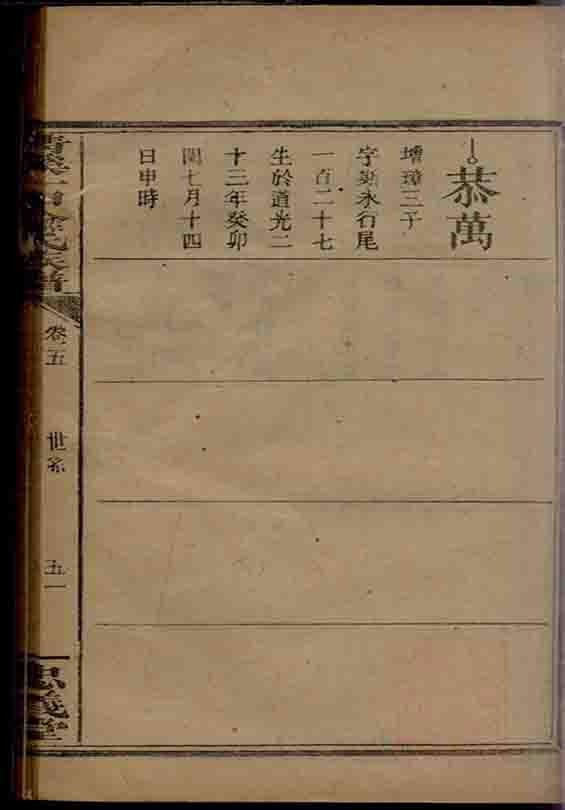 恭萬
增璋三子
字 永行尾
一百二十七
生於道光二
十三年癸卯
閏七月十四
日申時
卷五
世系
五一
忠義堂